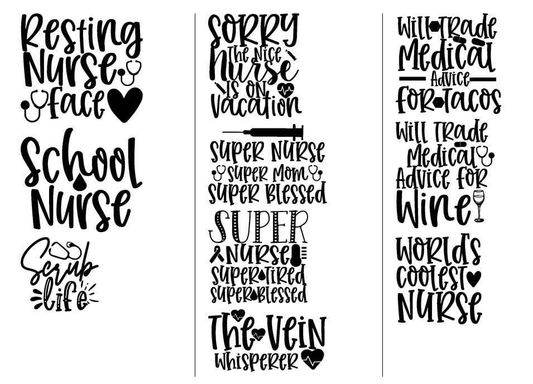 Resting
Nurse
face
School
Nurse
Scrub
life
SORRY
The Nice
Nurse
is on
vacation
Super Nurse
Super Mom
Super Blessed
SUPER
Nurse
super tired
super blessed
The Vein
whisperer
Will Trade
Medical
Advice
for Tacos
Will Trade
Medical
Advice for
Wine
World's
coolest
Nurse